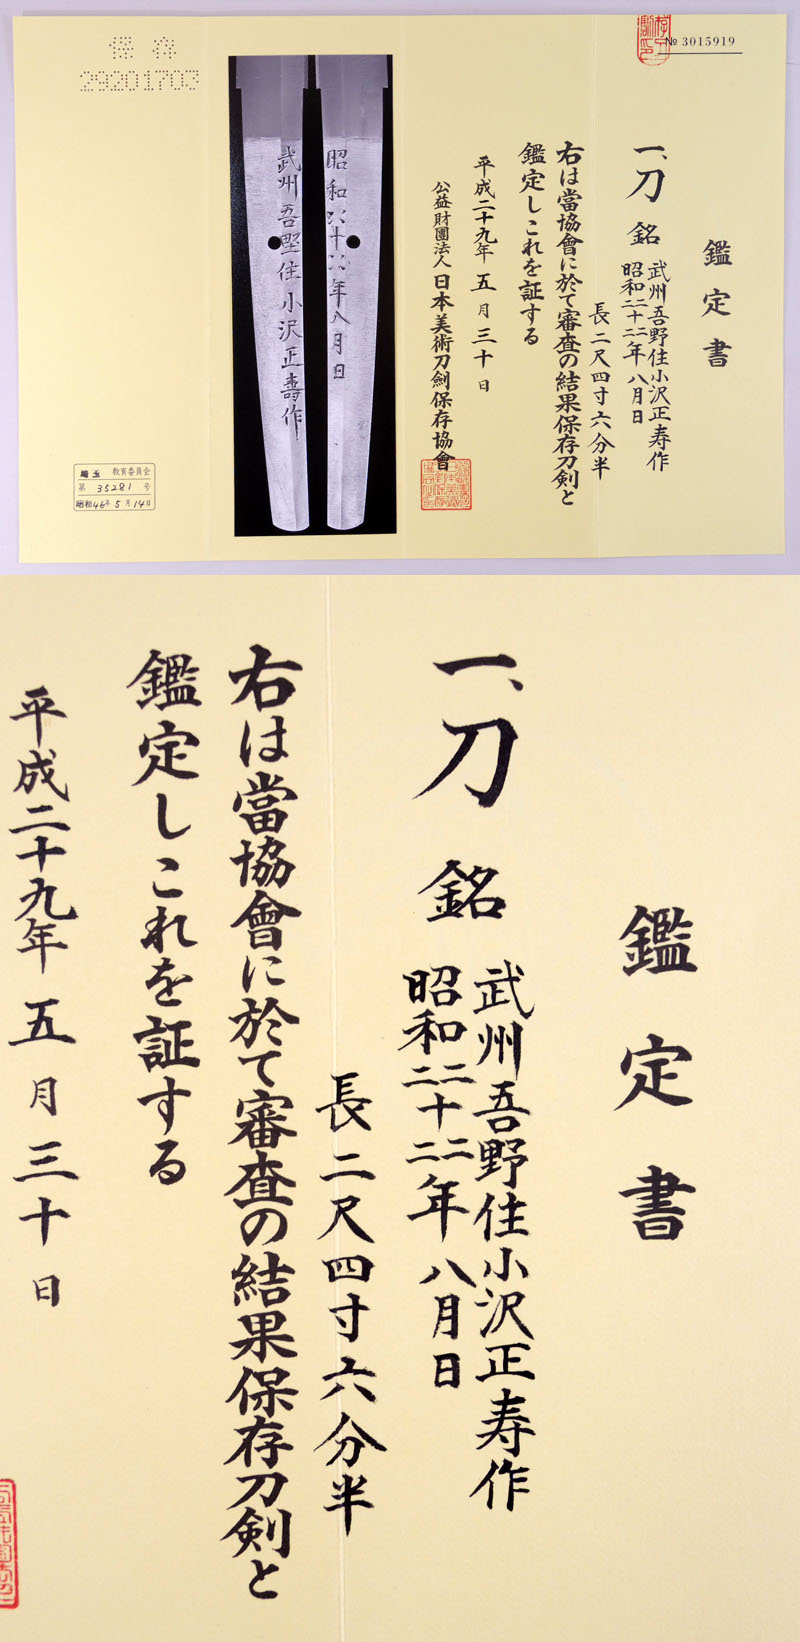 保存
29201703
№ 3015919
鑑定書
一、刀 銘 武州吾野住小沢正寿作
昭和二二十二二年八月日
長二尺四寸六分半
右は當協會に於て審査の結果保存刀剣と
鑑定しこれを証する
平成二十九年 五月三十日
公益財團法人 日本美術刀劍保存協會
昭和二二十二二年八月日
武州吾野住小沢正壽作
埼玉 教育委員会
第 35281 号
昭和46年5月14日
鑑定書
一、刀 銘 武州吾野住小沢正寿作
昭和二二十二二年八月日
長二尺四寸六分半
右は當協會に於て審査の結果保存刀剣と
鑑定しこれを証する
平成二十九年 五月三十日